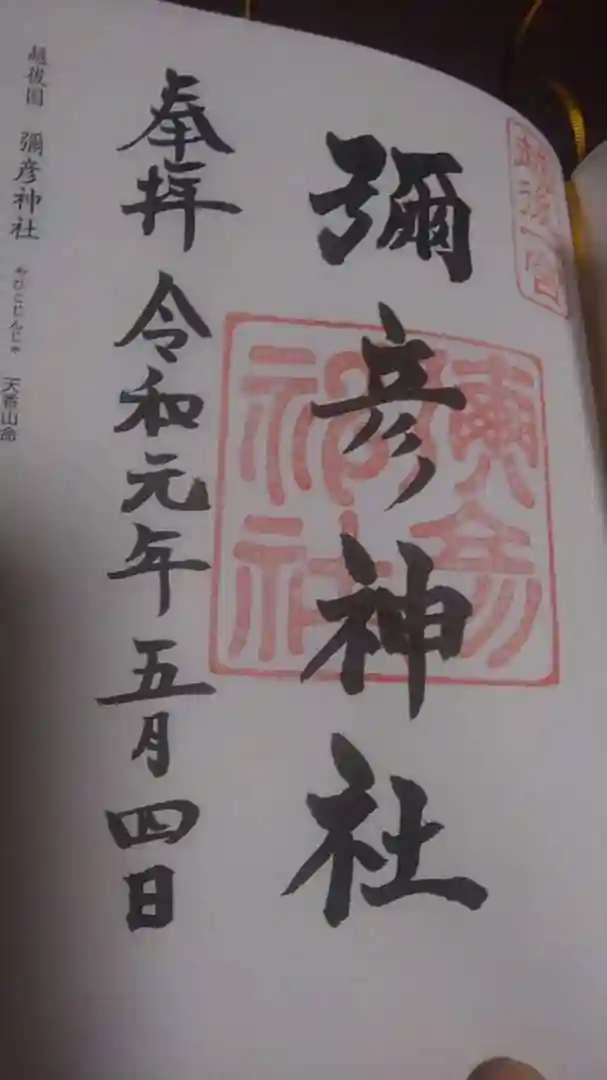 越後一宮
彌彦神社
彌彦神社
奉拝 令和元年五月四日
越後国 彌彦神社 やひこじんじゃ 天香山命